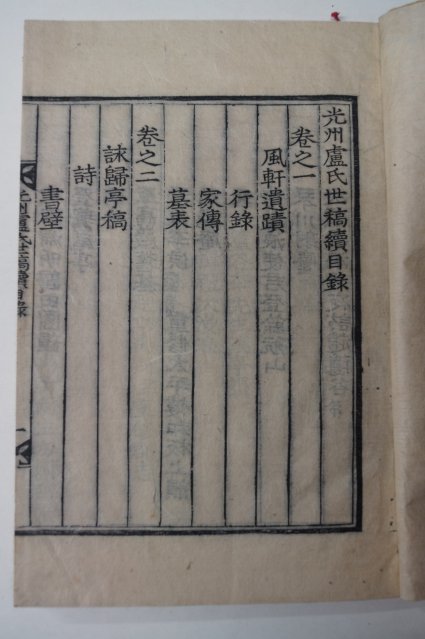 光州盧氏世稿續目錄
卷之一
風軒遺蹟
行錄
家傳
墓表
卷之二
詠歸亭稿
詩
書壁
光州盧氏世稿續目錄